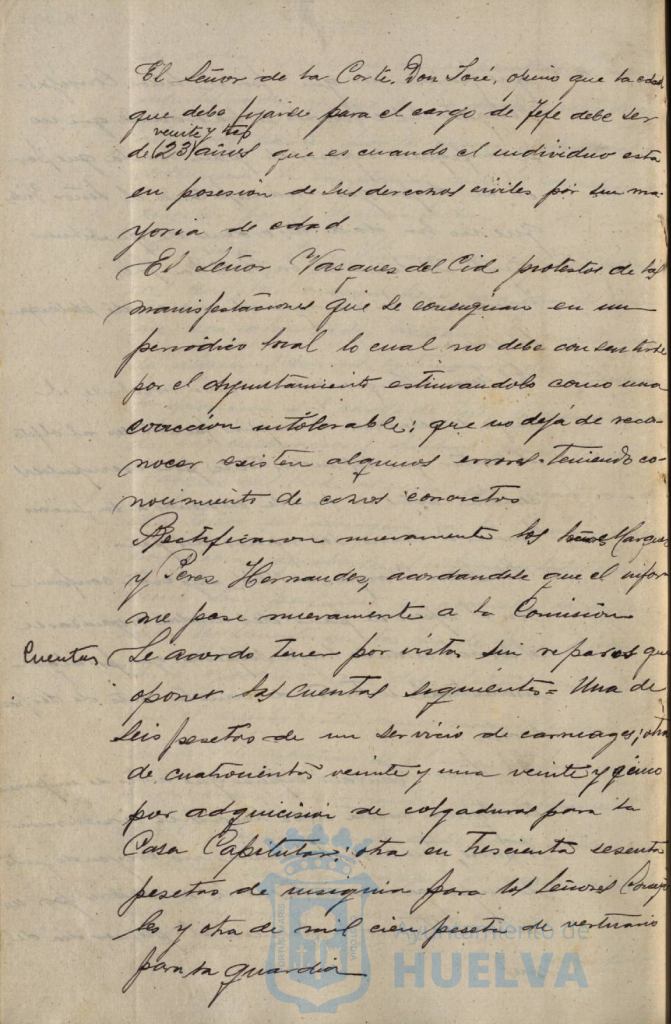 El Señor de la Corte, Don José, opinó que la edad
que debe fijarse para el cargo de Jefe debe ser
veinte y tres
de (23) años que es cuando el individuo está
en posesion de sus derechos civiles por su ma-
yoria de edad
El Señor Vasques del Cid protestó de las
manifestaciones que se consignan en un
periódico local lo cual no debe consentirse
por el Ayuntamiento estimandolo como una
coaccion intolerable; que no dejá de reco-
nocer existen algunos errores teniendo co-
nocimiento de casos concretos
Rectificaron nuevamente los Marques
y Peres Hernandes, acordandose que el infor-
me pase nuevamente a la Comisión
Cuentas Se acordo tener por vistas sin reparos que
oponer las cuentas siguientes = Una de
seis pesetas de un servicio de carruages; otra
de cuatrocientas veinte y una veinte y cinco
por adquicision de colgaduras para la
Casa Capitular; otra en trescienta sesenta
pesetas de insignia para los Señores Conceja-
les y otra de mil cien peseta de vestuario
para la guardia
Ayuntamiento de
HUELVA